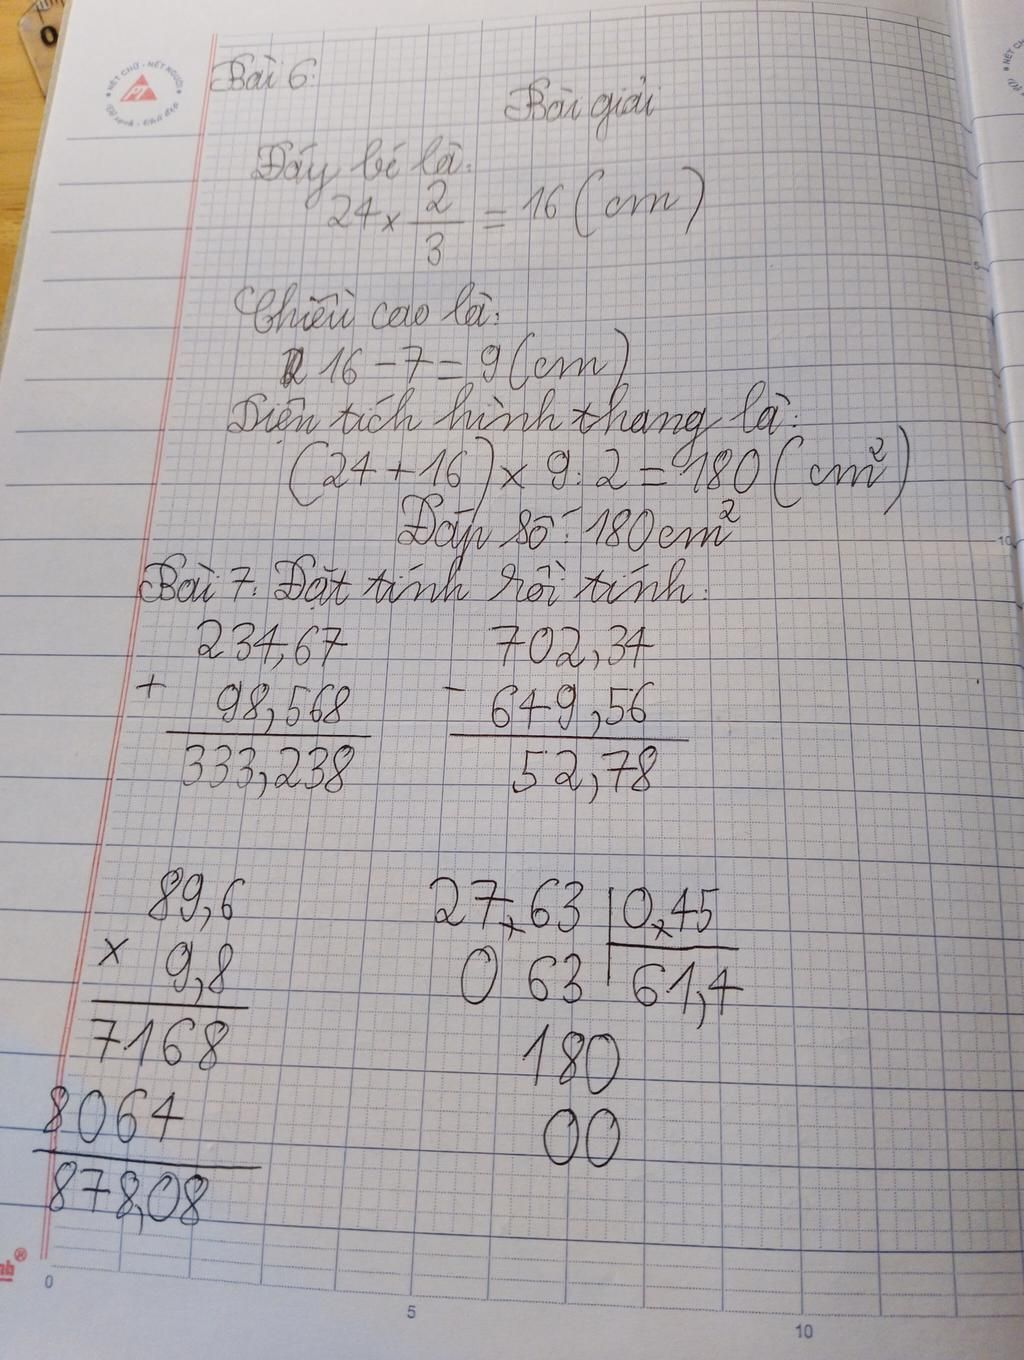 NÉT CHỮ - NẾT NGƯỜI
Bài 6:
Bài giải
Đáy bé là:
24 x 2/3 = 16 (cm)
Chiều cao là:
16 - 7 = 9 (cm)
Diện tích hình thang là:
(24 + 16) x 9 : 2 = 180 (cm²)
Đáp số: 180 cm²
Bài 7: Đặt tính rồi tính:
234,67
+ 98,568
333,238
702,34
- 649,56
52,78
89,6
x 9,8
7168
8064
878,08
27,63 | 0,45
0 63 | 61,4
180
00
0 5 10
5
10